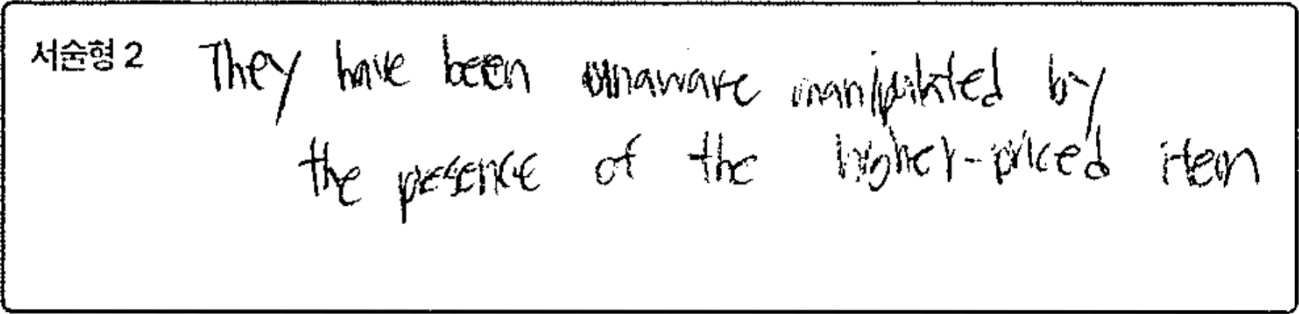 서술형 2 They have been unaware manipulated by
the pesence of the higher-priced item